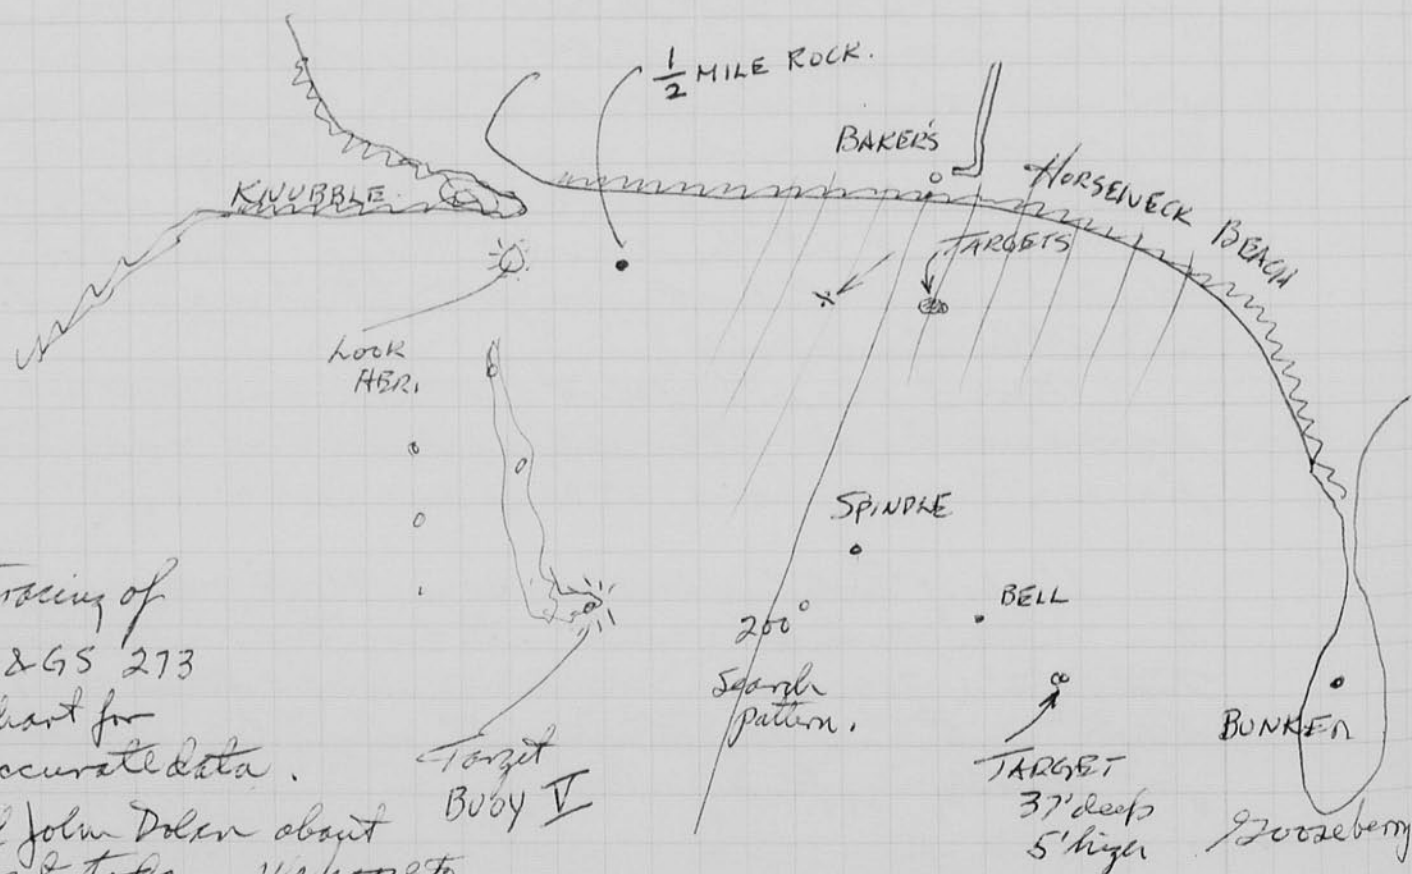 ½ MILE ROCK.
BAKER'S
HORSENECK BEACH
KNUBBLE
TARGETS
LOOK
HER,
SPINDLE
BELL
200°
Search
pattern.
Tracing of
&GS 273
chart for
accurate data.
John Dolan about
Target
BUOY V
TARGET
37' deep
5' high
BUNKER
Gooseberry